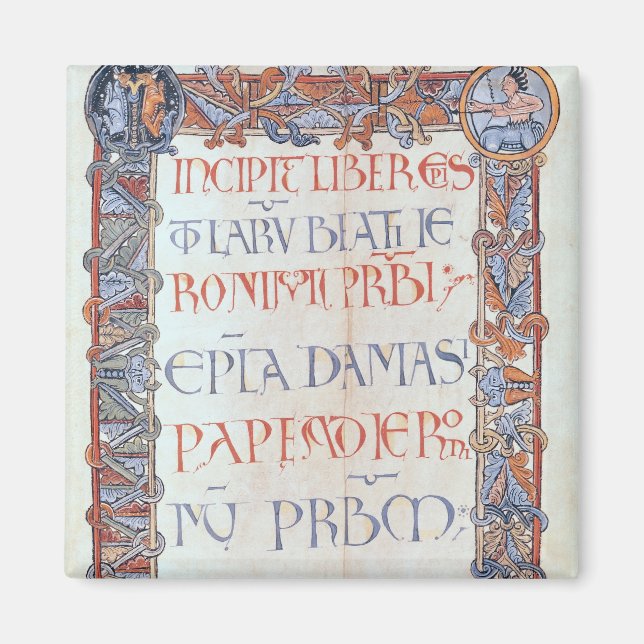 INCIPIT LIBER EPIS
TOLARŪ BEATI IE
RONIMI PRB̄I;
EPL̄A DAMASI
PAPE AD IERONI
MŪ PRB̄M;